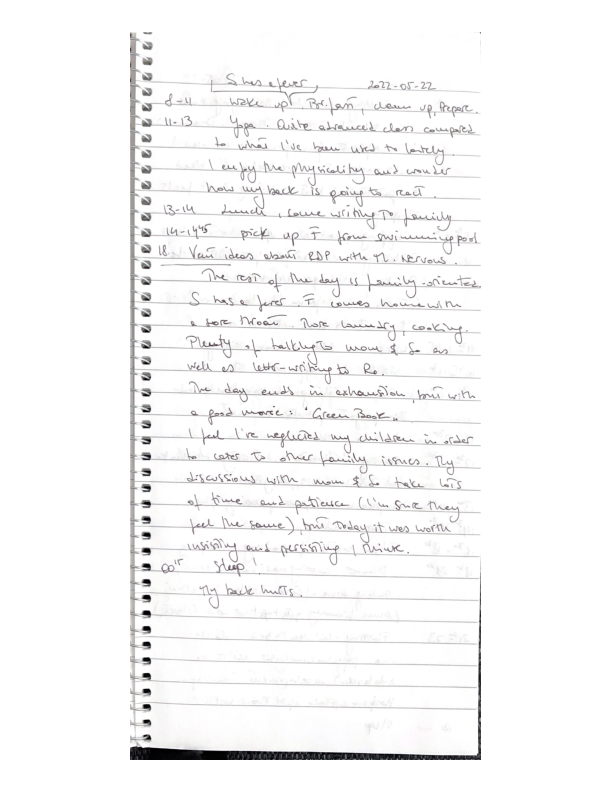 S has a fever, 2022-05-22
8-11 Wake up. Br.fast, clean up, prepare.
11-13 Yoga. Quite advanced class compared
to what I've been used to lately.
I enjoy the physicality and wonder
how my back is going to react.
13-14 Lunch, some writing to family
14-14⁴⁵ pick up F from swimming pool
18. Vent ideas about RDP with M. Nervous.
The rest of the day is family-oriented.
S has a fever. F comes home with
a sore throat. More laundry, cooking.
Plenty of talking to mom & So as
well as letter-writing to Ro.
The day ends in exhaustion, but with
a good movie: "Green Book".
I feel I've neglected my children in order
to cater to other family issues. My
discussions with mom & So take lots
of time and patience (I'm sure they
feel the same), but today it was worth
insisting and persisting, I think.
00¹⁵ Sleep!
My back hurts.